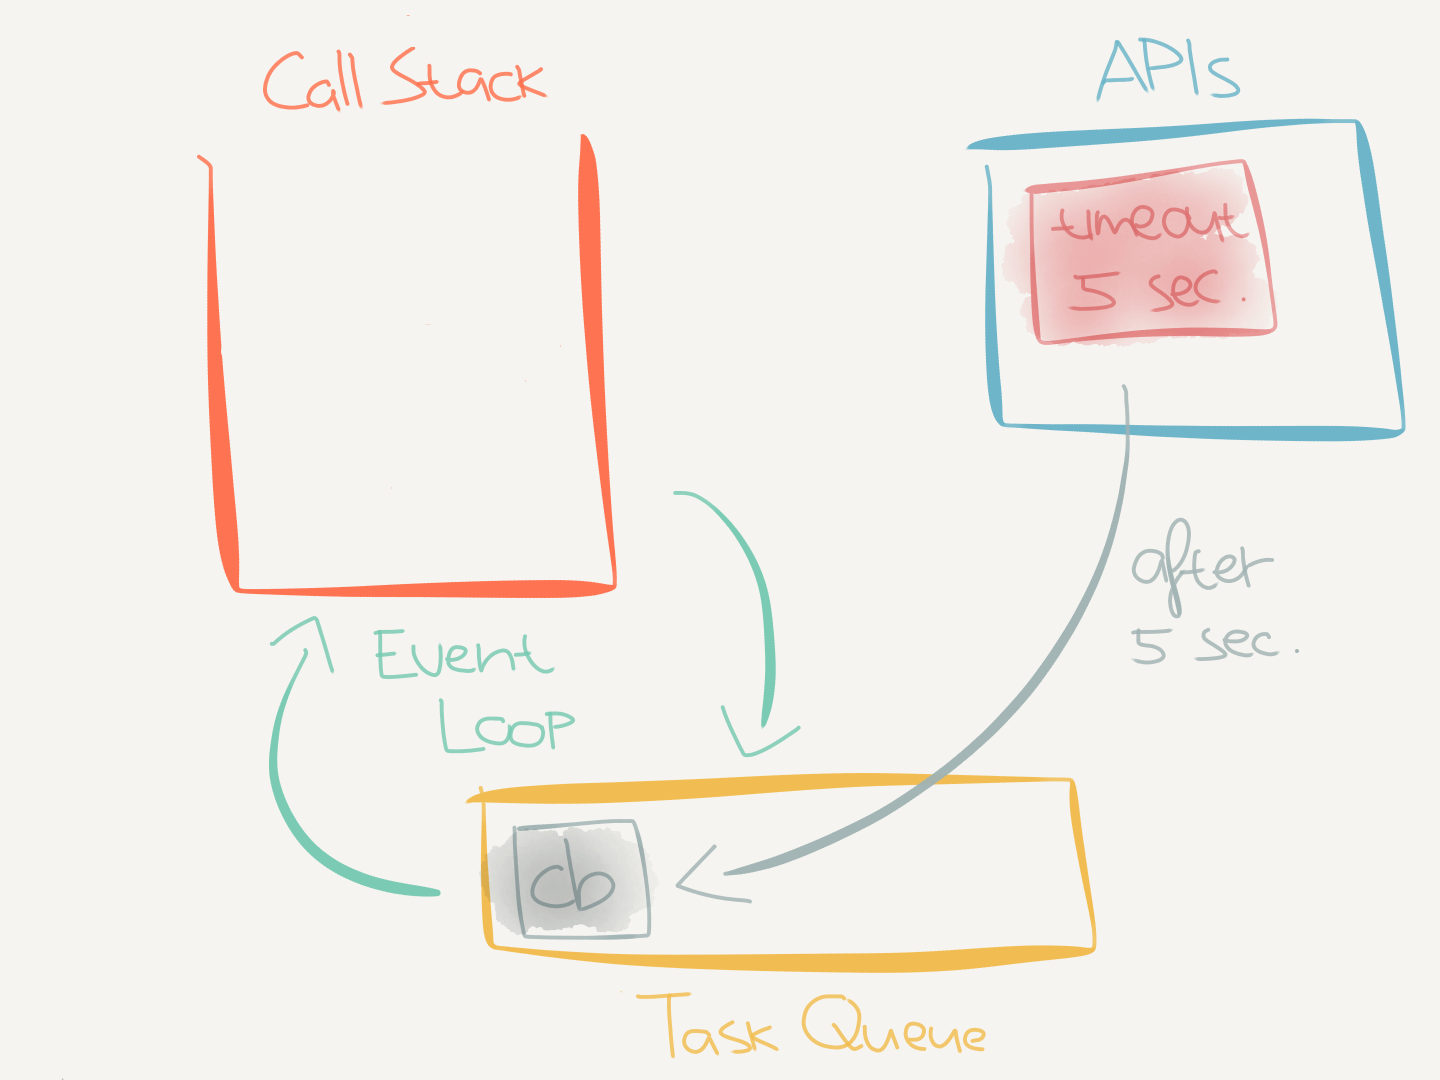 Call Stack
APIs
timeout
5 sec.
after
5 sec.
Event
Loop
cb
Task Queue